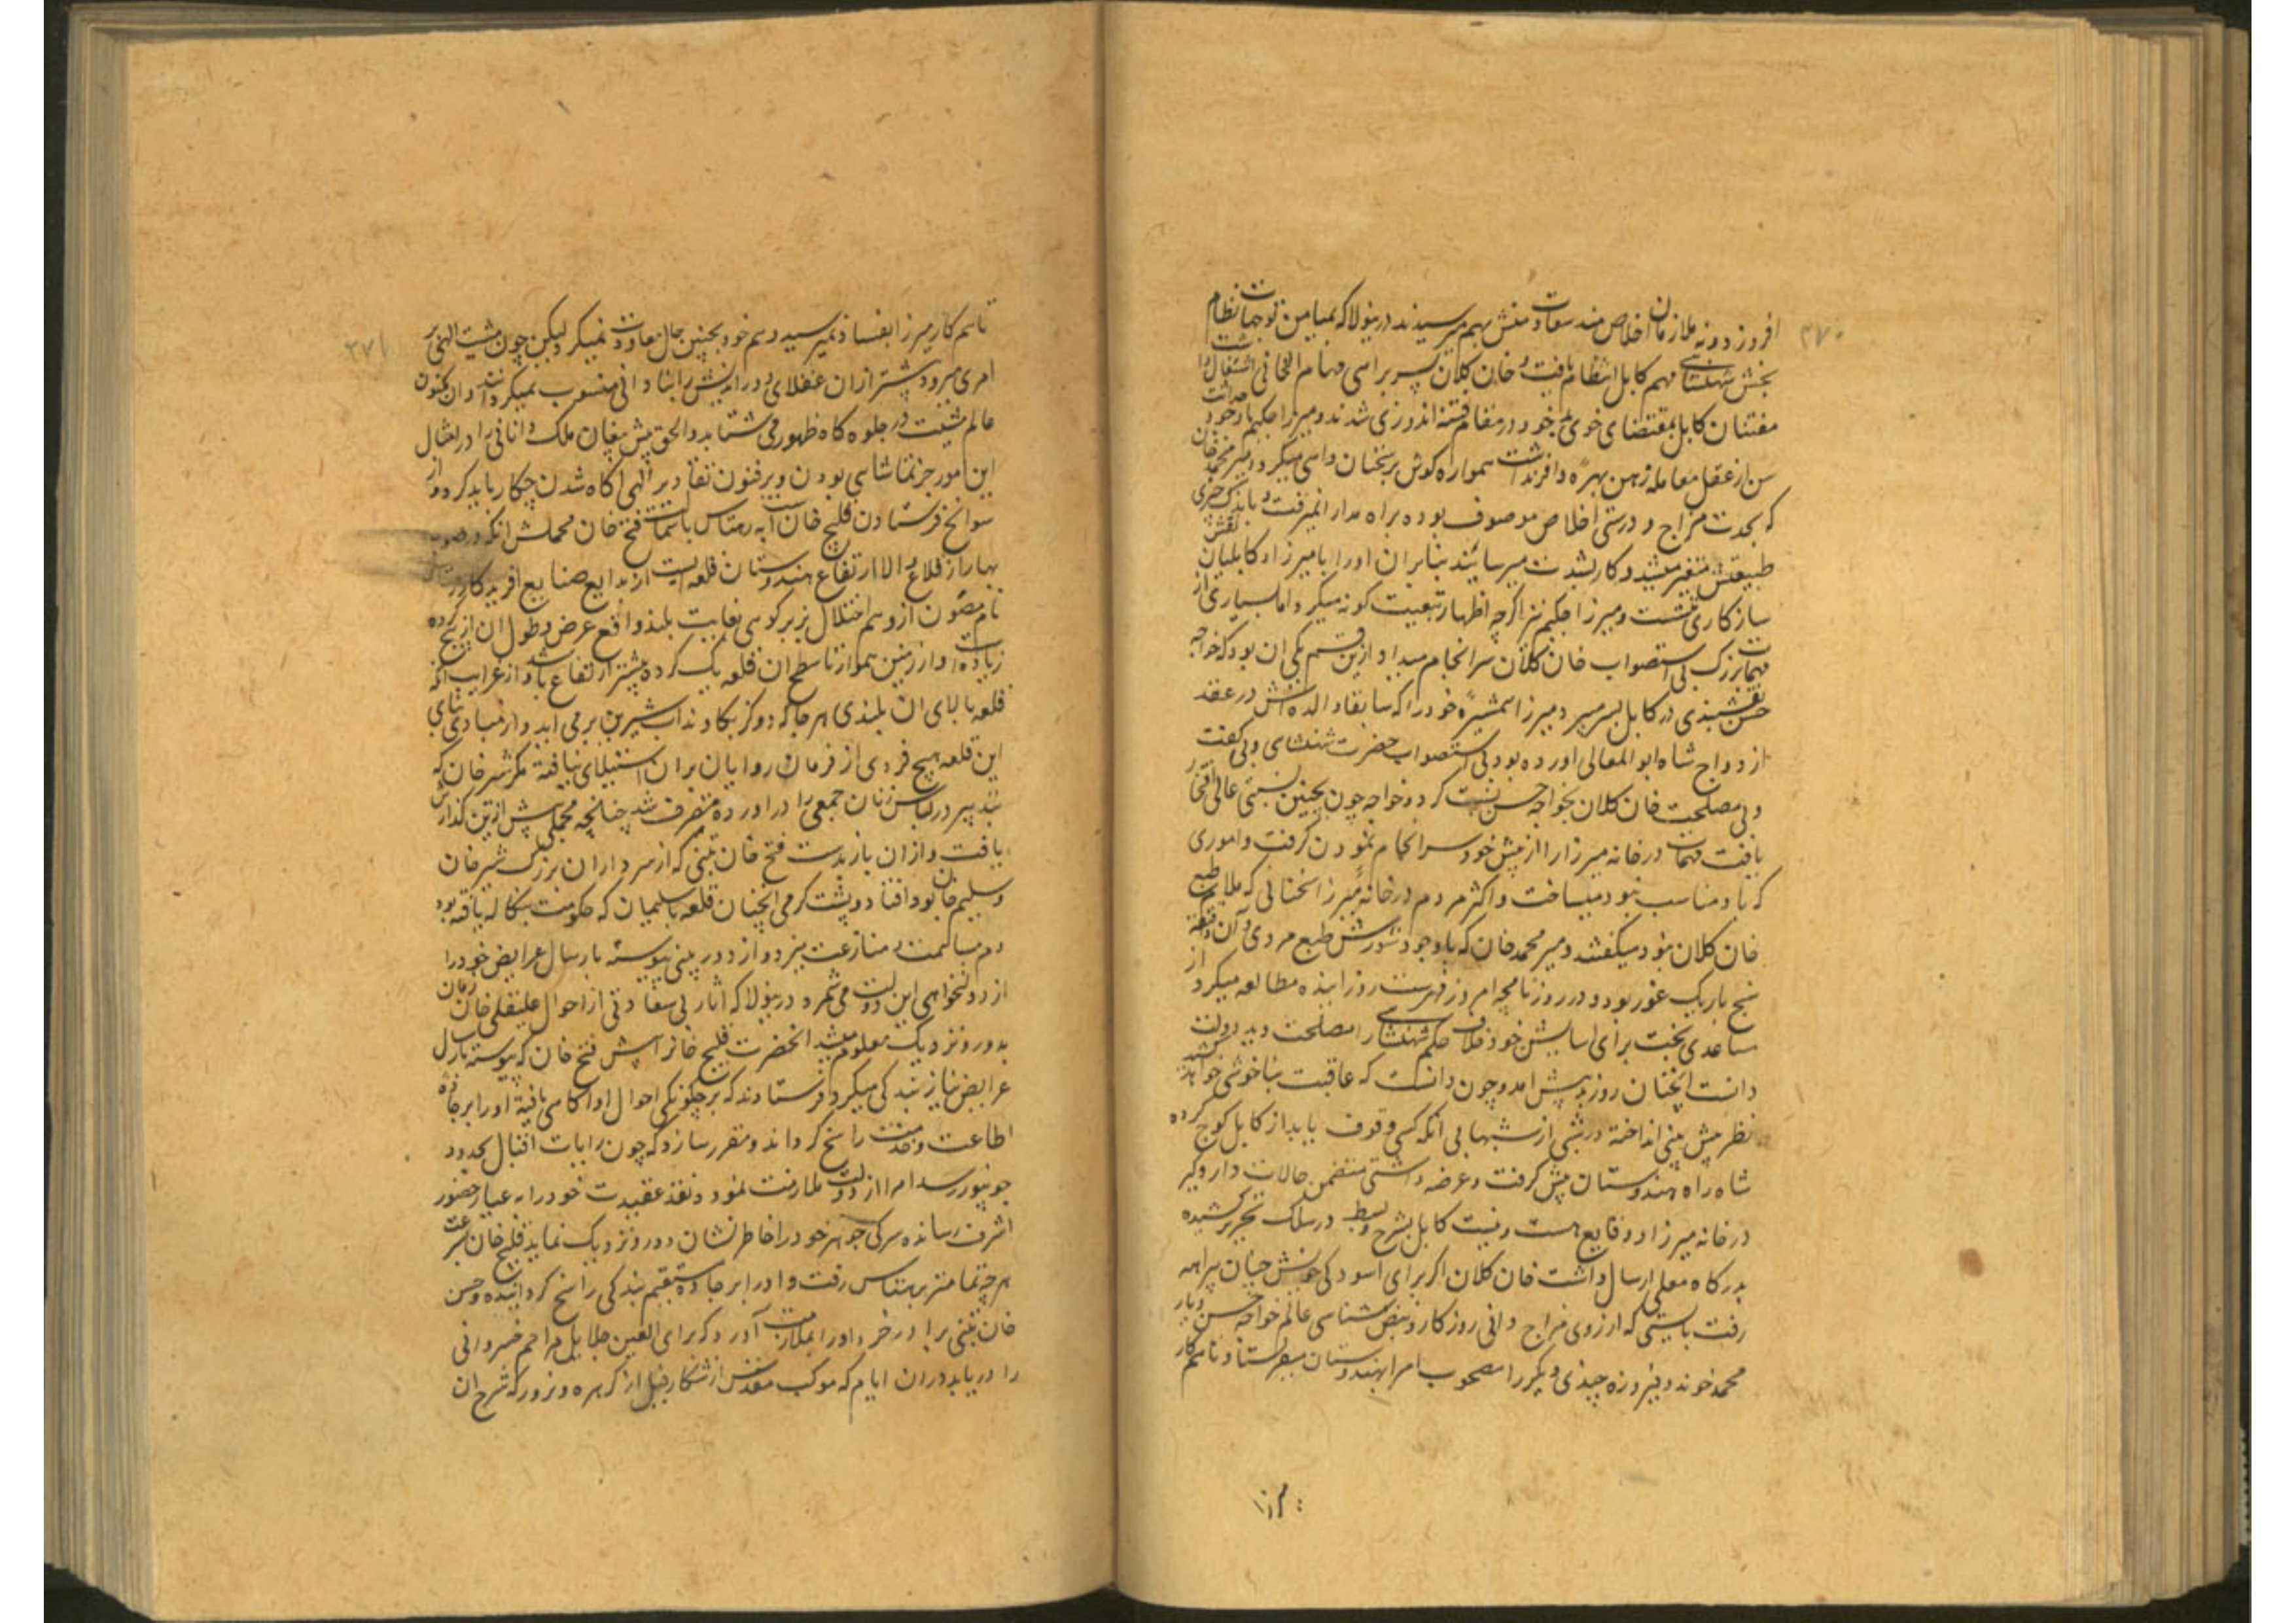 ۳۷۰
افروز دونه ملازمان اخلاص مند سعادت منش بهم میرسیدند درینولا که بمیامن توجهات نظام
بخش شهنشاهی مهم کابل انتظام یافت و خان کلان بسربراهی مهام انجا اشتغال داشت
مفتنان کابل بمقتضای خوی خود در مقام فتنه اندوزی شدند و میرزا حکیم با وجود حداثت
سن از عقل معامله ذهن بهره وافر نداشت همواره گوش بر سخنان واهی میکرد و میر محمد خان
که بحدت مزاج و درستی اخلاص موصوف بوده براه مدارا نمیرفت و باندک چیزی
طبیعتش متغیر میشد و کار بشدت میرسانید بنابران اورا با میرزا و کابلیان نقش
سازکاری نشست و میرزا حکیم نیز اگرچه اظهار تبعیت گونه میکرد اما بسیاری از
مهمات بزرک بی استصواب خان کلان سرانجام میداد ازین قسم یکی ان بود که خواجه
حسن نقشبندی در کابل بسر میبرد میرزا همشیرهٔ خود را که سابقا والده اش در عقد
ازدواج شاه ابو المعالی اورده بود بی استصواب حضرت شهنشاهی و بی گفت
و بی مصلحت خان کلان بخواجه حسن نسبت کرد و خواجه چون بچنین نسبتی عالی افتخار
یافت مهمات درخانه میرزا را از پیش خود سرانجام نمودن گرفت و اموری
که باو مناسب نبود میساخت و اکثر مردم درخانهٔ میرزا سخنانی که ملایم طبع
خان کلان نبود میکفتند و میر محمد خان که باوجود شورش طبع مردی دان دقیقه
سنج باریک غور بود و در روزنامچه امروز فهرست روز اینده مطالعه میکرد از
مساعدی بخت برای اسایش خود خلاف حکم شهنشاهی را مصلحت دید دولت
دانست انچنان روز بد پیش امد و چون دانست که عاقبت بناخوشی خواهد کشید
نظر پیش بینی انداخته در شبی از شبها بی انکه کسی وقوف یابد از کابل کوچ کرده
شاه راه هندوستان پیش گرفت و عرضه داشتی متضمن حالات دار و گیر
درخانه میرزا و وقایع هست و نیست کابل بشرح و بسط در سلک تحریر کشیده
بدرگاه معلی ارسال داشت خان کلان اگر برای اسودگی خویش چنان بیراهه
رفت بایستی که از روی مزاج دانی روزگار و نبض شناسی عالم خواجه حسن و یار
محمد خوند و فیروزه چندی دیگر را مصحوب امرا بهندوستان میفرستاد تا هم کار
۳۷۱
تا هم کار میرزا بفساد نمیرسید و هم خود بچنین حال معاودت نمیکرد لیکن چون مشیت الهی بر
امری میرود پیشتر ازان عقلای دور اندیش را بنادانی منسوب میکردانند و ان مکنون
عالم مشیت در جلوه گاه ظهور می شتابد و الحق پیش بینان ملک دانائی را در امثال
این امور جز تماشائی بودن و بر فنون تقادیر الهی اگاه شدن چکار باید کرد و از
سوانح فرستادن قلیچ خان است به رهتاس باستمالت فتح خان مجملش انکه در صوب
بهار از قلاع والا ارتفاع هندوستان قلعه ایست از بدایع صنایع افریدکار رهتاس
نام مصون از وهم اختلال بزبر کوهی بغایت بلند واقع عرض و طول ان از پنج کروه
زیاده است و از زمین هموار تا سطح ان قلعه یک کروه بیشتر ارتفاع باشد و از غرایب انکه
قلعه بالای ان بلندی هر جا که دو گز بکاوند اب شیرین بر می اید و از مبادی بنای
این قلعه هیچ فردی از فرمان روایان بران استیلای نیافته مگر شیر خان که
بتدبیر در لباس زنان جمعی را در اورده متصرف شد چنانچه مجملی پیش ازین گذارش
یافت و ازان باز بدست فتح خان تبنی که از سرداران بزرک شیر خان
و سلیم خان بود افتاد و پشت گرمی انچنان قلعه با سلیمان که حکومت بنگاله یافته بود
دم مساهمت و منازعت میزد و از دور بینی پیوسته بارسال عرایض خود را
از دولتخواهی این دولت می شمرد درینولا که اثار بی سعادتی از احوال علیقلی خان زمان
بدور و نزدیک معلوم میشد انحضرت قلیچ خانرا پیش فتح خان که پیوسته بارسال
عرایض نیاز بندگی میکرد فرستادند که بر چگونگی احوال او اگاهی یافته اورا بر جاده
اطاعت و خدمت راسخ گرداند و مقرر سازد که چون رایات اقبال بحدود
جونپور رسد امرا از دولت ملازمت نمود و نقد عقیدت خود را به عیار حضور
اشرف رسانده سرگی جوهر خود را خاطرنشان دور و نزدیک نماید قلیچ خان بسرعت
هرچه تمامتر برهتاس رفت و اورا بر جاده مستقیم بندگی راسخ گردانیده و حسن
خان تبنی برادر خرد اورا بملازمت آورد که برای العین جلایل مراحم خسروانی
را دریابد دران ایام که موکب مقدس از شکار فیل از گرهره و نرور که شرح ان